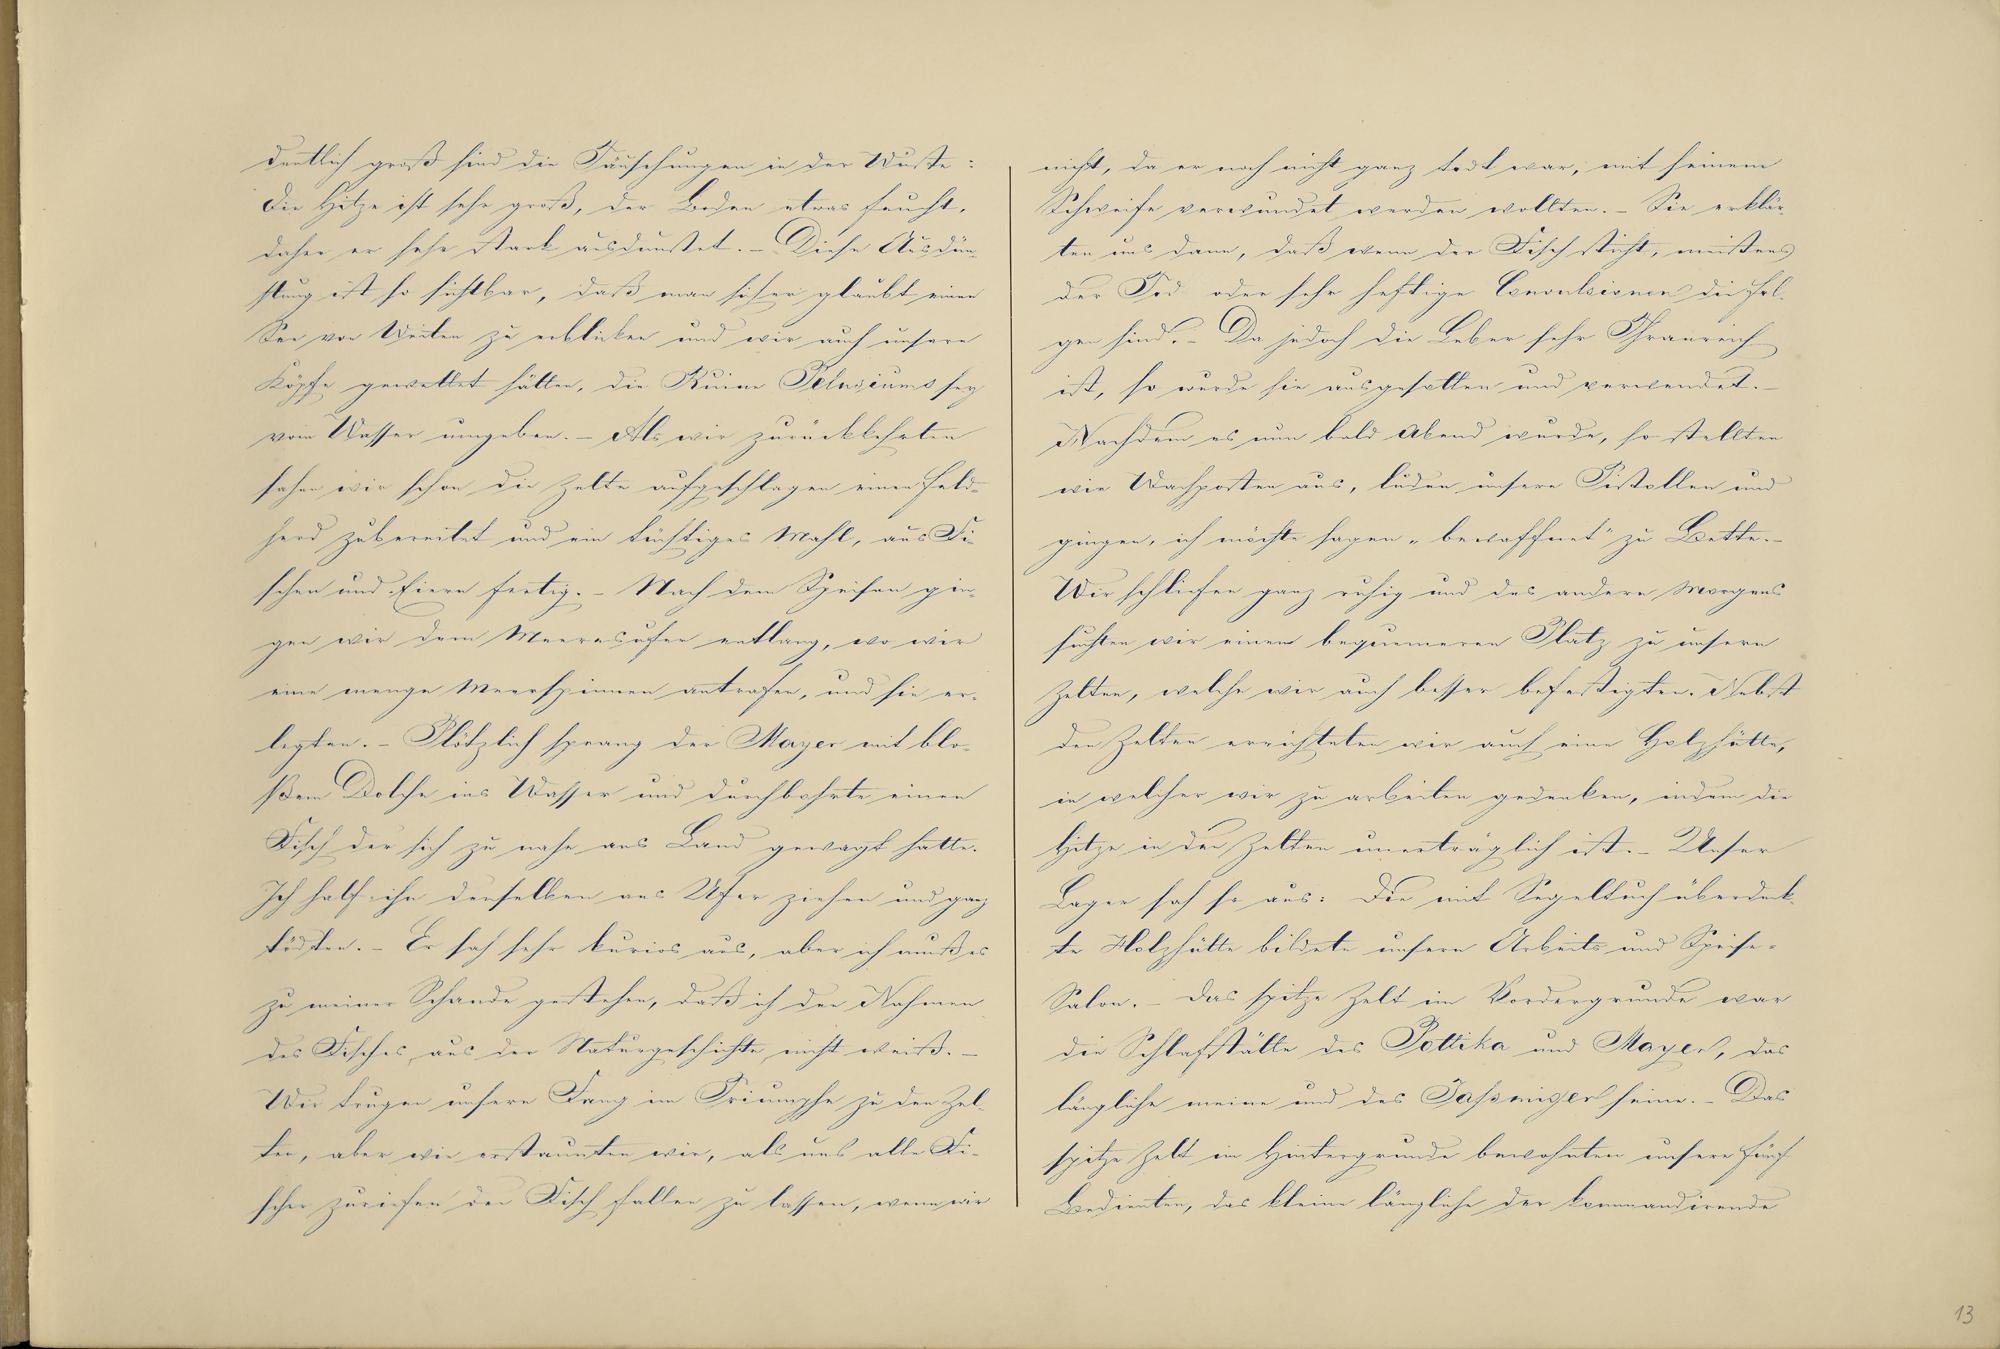 dentlich groß sind die Täuschungen in der Wüste:
die Hitze ist sehr groß, der Boden etwas feucht,
daher er sehr stark ausdünstet. – Diese Ausdün-
stung ist so sichtbar, daß man sicher glaubt einen
See von Weiten zu erblicken und wir auch unsere
Köpfe gewettet hätten, die Ruine Pelusiums sey
vom Wasser umgeben. – Als wir zurückkehrten
sahen wir schon die Zelte aufgeschlagen einen Feld-
herd zubereitet und ein tüchtiges Mahl, aus Fi-
schen und Eiern fertig. – Nach dem Speisen gin-
gen wir dem Meeresufer entlang, wo wir
eine menge Meerspinnen antrafen, und sie er-
legten. – Plötzlich sprang der Mayer mit blo-
ßem Dolche ins Wasser und durchbohrte einen
Fisch der sich zu nahe ans Land gewagt hatte.
Ich half ihn denselben ans Ufer ziehen und ganz
tödten. – Er sah sehr kurios aus, aber ich muß es
zu meiner Schande gestehen, daß ich den Nahmen
des Fisches, aus der Naturgeschichte, nicht weiß. –
Wir trugen unsere Fang im Triumphe zu den Zel-
ten, aber wie erstaunten wir, als uns alle Fi-
scher zuriefen den Fisch fallen zu lassen, wenn wir
nicht, da er noch nicht ganz todt war, mit seinem
Schweife verwundet werden wollten. – Sie erklär-
ten uns dann, daß wenn der Fisch sticht, meistens
der Tod oder sehr heftige Convulsionen die Fol-
gen sind. – Da jedoch die Leber sehr Thranreich
ist, so wurde sie ausgesotten und verwendet. –
Nachdem es nun bald Abend wurde, so stellten
wir Wachposten aus, luden unsere Pistollen und
gingen, ich möchte sagen „bewaffnet" zu Bette. –
Wir schliefen ganz ruhig und des andern Morgens
suchten wir einen bequemeren Platz zu unsern
Zelten, welche wir auch besser befestigten. Nebst
den Zelten errichteten wir auch eine Holzhütte,
in welcher wir zu arbeiten gedenken, indem die
Hitze in den Zelten unerträglich ist. – Unser
Lager sah so aus: Die mit Segeltuch überdeck-
te Holzhütte bildete unsern Arbeits und Speise-
Salon. – Das spitze Zelt im Vordergrunde war
die Schlafstätte des Pottika und Mayer, das
längliche meine und des Jassniger seine. – Das
spitze Zelt im Hintergrunde bewohnten unsere fünf
Bedienten, das kleine längliche der kommandirende
13